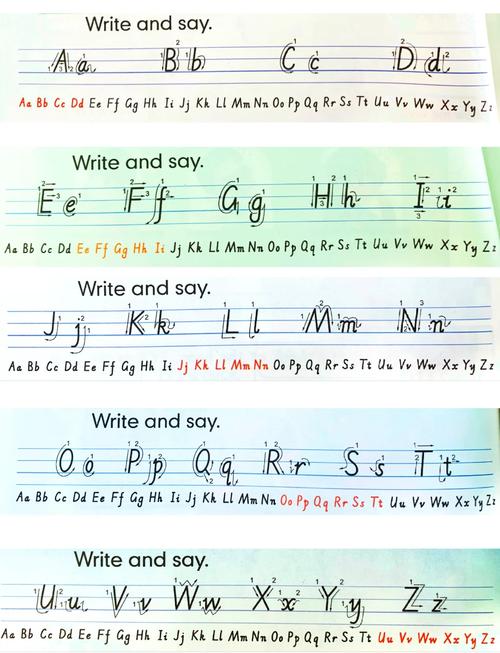 Write and say.
Aa Bb Cc Dd
Aa Bb Cc Dd Ee Ff Gg Hh Ii Jj Kk Ll Mm Nn Oo Pp Qq Rr Ss Tt Uu Vv Ww Xx Yy Zz
Write and say.
Ee Ff Gg Hh Ii
Aa Bb Cc Dd Ee Ff Gg Hh Ii Jj Kk Ll Mm Nn Oo Pp Qq Rr Ss Tt Uu Vv Ww Xx Yy Zz
Write and say.
Jj Kk Ll Mm Nn
Aa Bb Cc Dd Ee Ff Gg Hh Ii Jj Kk Ll Mm Nn Oo Pp Qq Rr Ss Tt Uu Vv Ww Xx Yy Zz
Write and say.
Oo Pp Qq Rr Ss Tt
Aa Bb Cc Dd Ee Ff Gg Hh Ii Jj Kk Ll Mm Nn Oo Pp Qq Rr Ss Tt Uu Vv Ww Xx Yy Zz
Write and say.
Uu Vv Ww Xx Yy Zz
Aa Bb Cc Dd Ee Ff Gg Hh Ii Jj Kk Ll Mm Nn Oo Pp Qq Rr Ss Tt Uu Vv Ww Xx Yy Zz